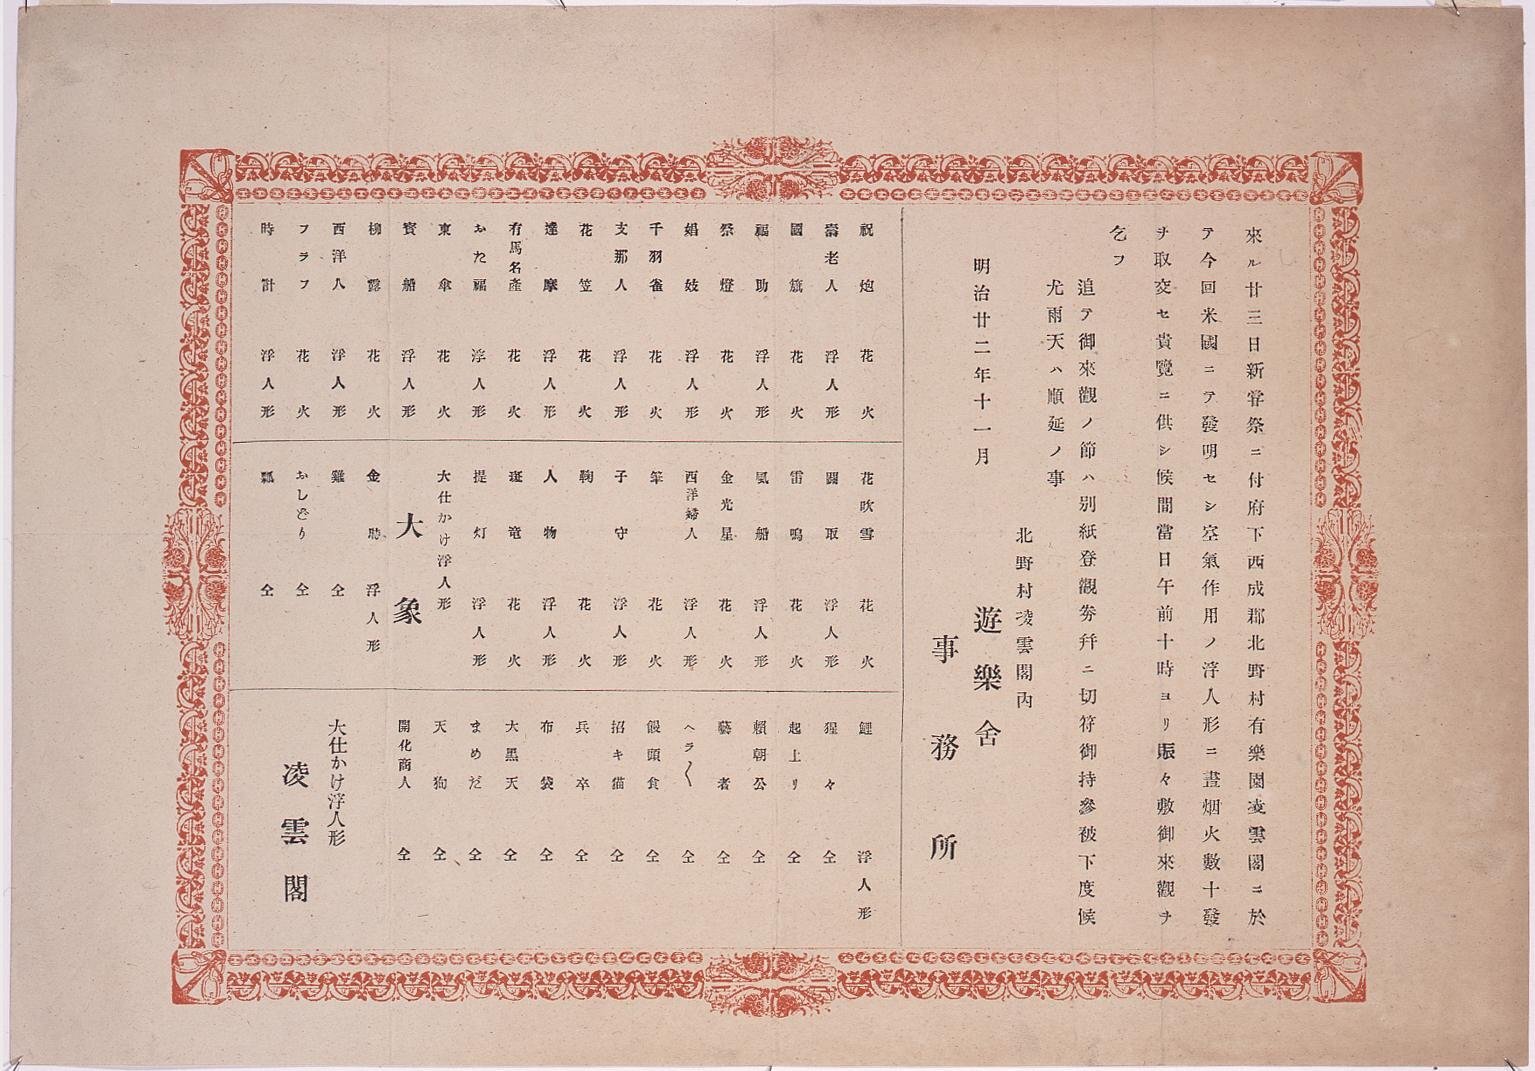 來ル廿三日新甞祭ニ付府下西成郡北野村有樂園凌雲閣ニ於
テ今回米國ニテ發明セシ空氣作用ノ浮人形ニ晝烟火數十發
ヲ取交セ貴覽ニ供シ候間當日午前十時ヨリ賑々敷御來觀ヲ
乞フ
追テ御來觀ノ節ハ別紙登觀劵幷ニ切符御持參被下度候
尤雨天ハ順延ノ事
北野村凌雲閣内
明治廿二年十一月
遊樂舍
事務所
祝炮 花火
壽老人 浮人形
國旗 花火
福助 浮人形
祭燈 花火
娼妓 浮人形
千羽雀 花火
支那人 浮人形
花笠 花火
達摩 浮人形
有馬名產 花火
おた福 浮人形
東傘 花火
寳船 浮人形
柳露 花火
西洋人 浮人形
フラフ 花火
時計 浮人形
花吹雪 花火
鬪取 浮人形
雷鳴 花火
風船 浮人形
金光星 花火
西洋婦人 浮人形
筆 花火
子守 浮人形
鞠 花火
人物 浮人形
斑竜 花火
提灯 浮人形
大仕かけ浮人形
大象
金時 浮人形
雞 仝
おしどり 仝
瓢 仝
鯉 浮人形
猩々 仝
起上リ 仝
賴朝公 仝
藝者 仝
ヘラ〱 仝
饅頭食 仝
招キ猫 仝
兵卒 仝
布袋 仝
大黑天 仝
まめだ 仝
天狗 仝
開化商人 仝
大仕かけ浮人形
凌雲閣